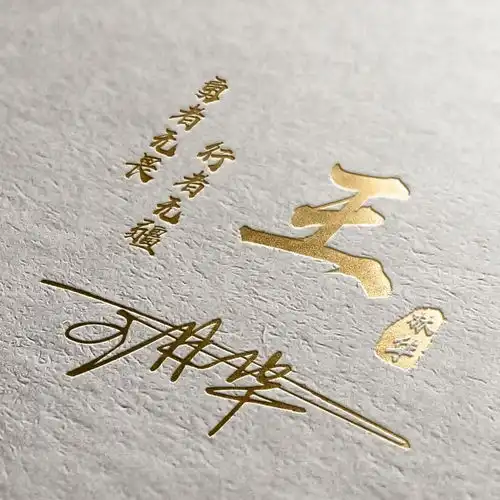 勇者无畏
行者无疆
王
华